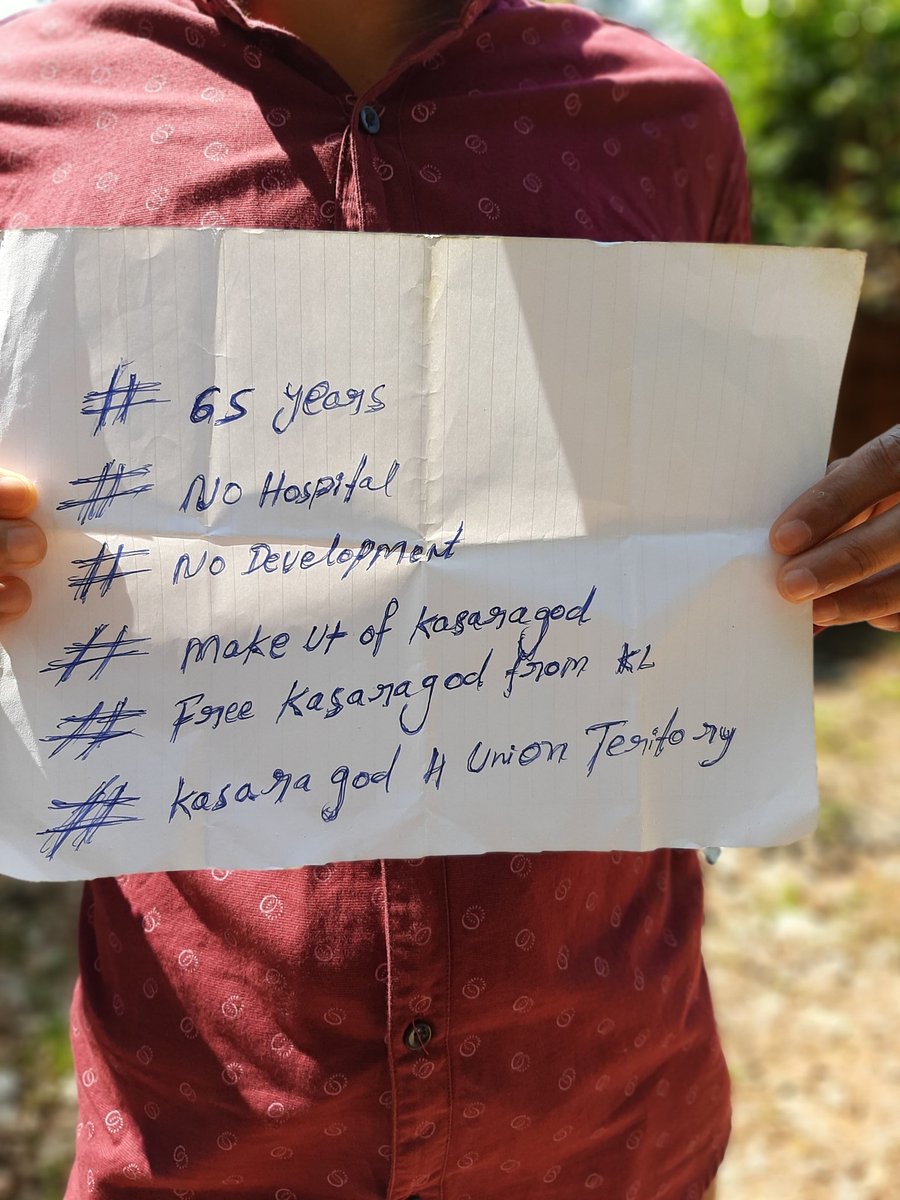 # 65 years
# No Hospital
# No Development
# Make Ut of kasaragod
# Free Kasaragod from KL
# kasaragod A Union Teritory